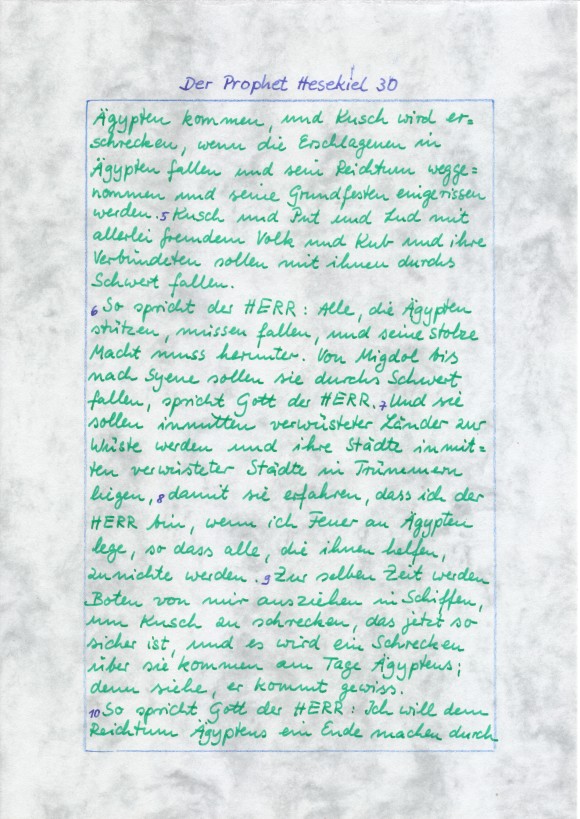 Der Prophet Hesekiel 30
Ägypten kommen, und Kusch wird er=
schrecken, wenn die Erschlagenen in
Ägypten fallen und sein Reichtum wegge=
nommen und seine Grundfesten eingerissen
werden. 5 Kusch und Put und Lud mit
allerlei fremdem Volk und Kub und ihre
Verbündeten sollen mit ihnen durchs
Schwert fallen.
6 So spricht der HERR: Alle, die Ägypten
stützen, müssen fallen, und seine stolze
Macht muss herunter. Von Migdol bis
nach Syene sollen sie durchs Schwert
fallen, spricht Gott der HERR. 7 Und sie
sollen inmitten verwüsteter Länder zur
Wüste werden und ihre Städte inmit=
ten verwüsteter Städte in Trümmern
liegen, 8 damit sie erfahren, dass ich der
HERR bin, wenn ich Feuer an Ägypten
lege, so dass alle, die ihnen helfen,
zunichte werden. 9 Zur selben Zeit werden
Boten von mir ausziehen in Schiffen,
um Kusch zu schrecken, das jetzt so
sicher ist, und es wird ein Schrecken
über sie kommen am Tage Ägyptens;
denn siehe, er kommt gewiss.
10 So spricht Gott der HERR: Ich will dem
Reichtum Ägyptens ein Ende machen durch